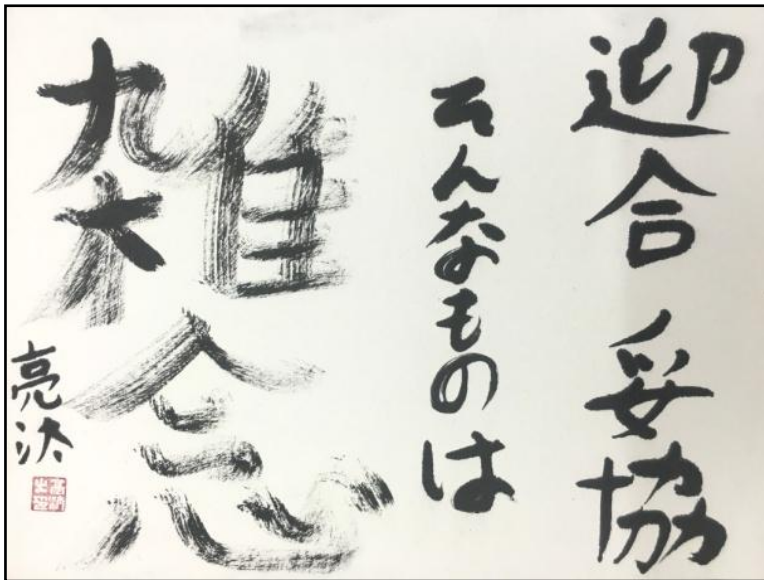 迎合 妥協
そんなものは
雑念
亮汰